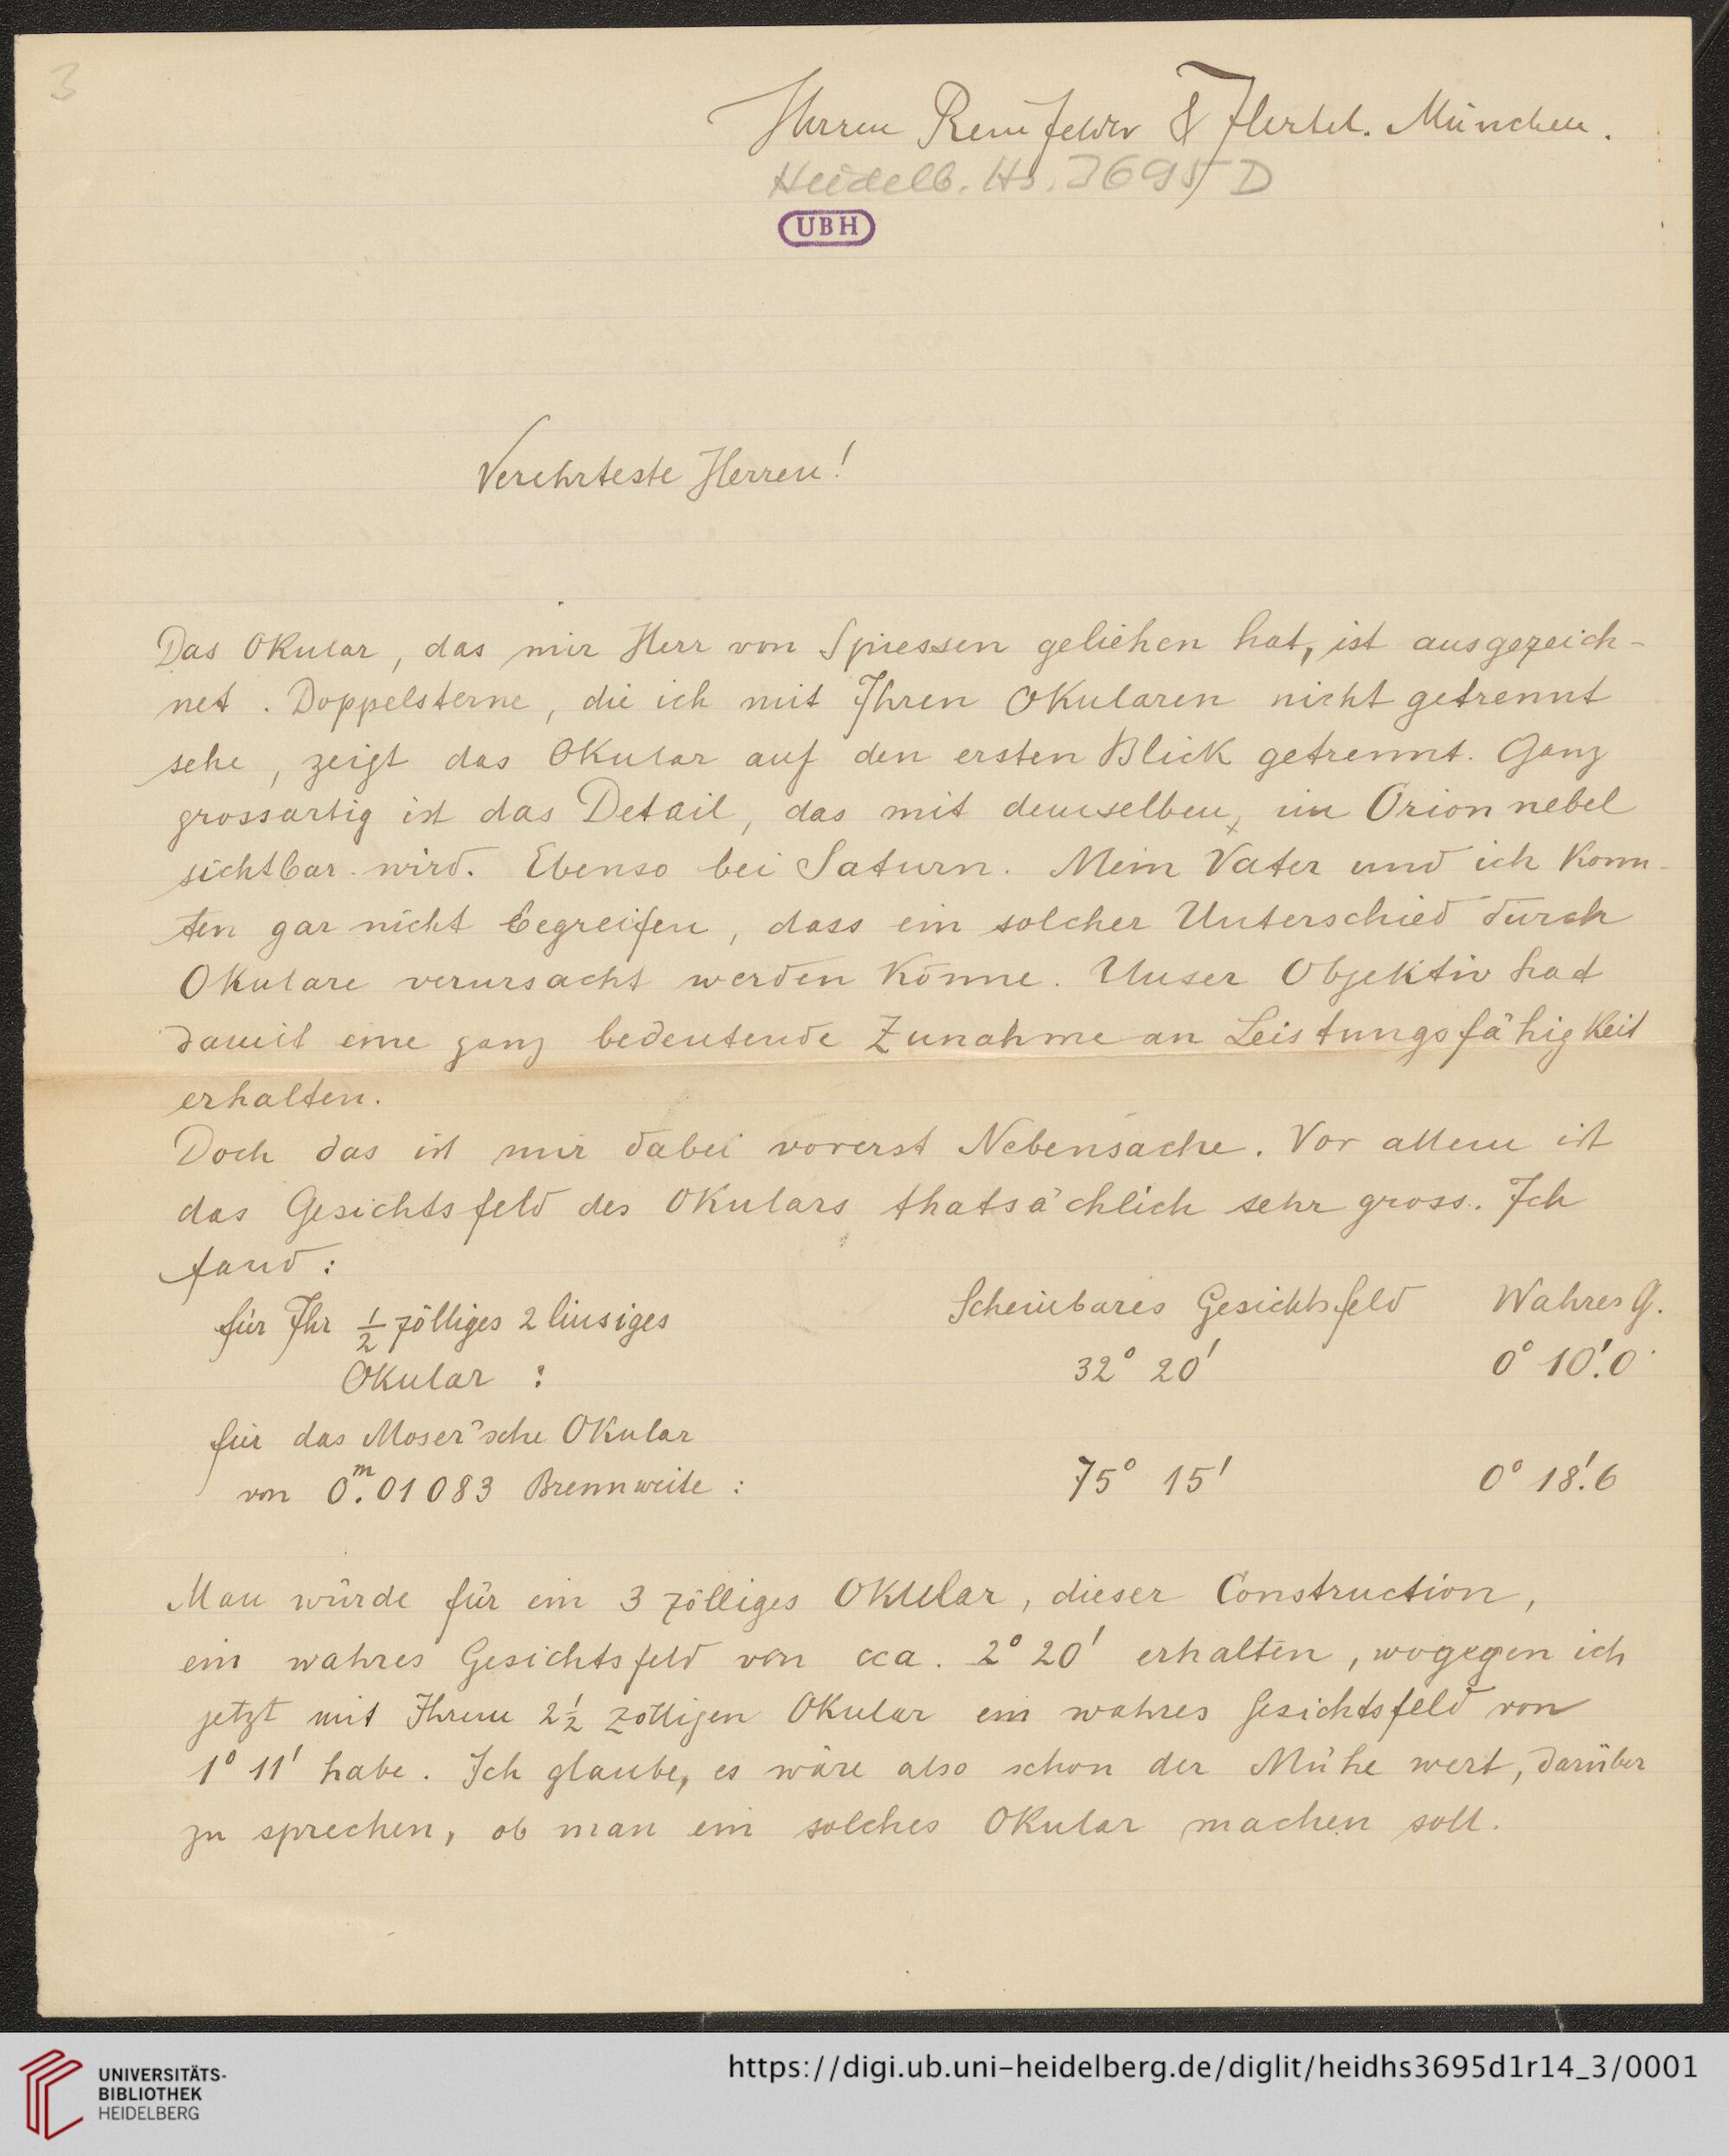 3
Herren Reinfelder & Hertel. München.
Heidelb. Hs. 3695 D
UBH
Verehrteste Herren!
Das Okular, das mir Herr von Spiessen geliehen hat, ist ausgezeich-
net. Doppelsterne, die ich mit Ihren Okularen nicht getrennt
sehe, zeigt das Okular auf den ersten Blick getrennt. Ganz
grossartig ist das Detail, das mit demselben, im Orionnebel
sichtbar wird. Ebenso bei Saturn. Mein Vater und ich konn-
ten gar nicht begreifen, dass ein solcher Unterschied durch
Okulare verursacht werden könne. Unser Objektiv hat
damit eine ganz bedeutende Zunahme an Leistungsfähigkeit
erhalten.
Doch das ist mir dabei vorerst Nebensache. Vor allem ist
das Gesichtsfeld des Okulars thatsächlich sehr gross. Ich
fand:
Scheinbares Gesichtsfeld Wahres G.
für Ihr 1/2 zölliges 2 linsiges
Okular : 32° 20' 0° 10'.0
für das Moser'sche Okular
von 0m.01083 Brennweite : 75° 15' 0° 18'.6
Man würde für ein 3 zölliges Okular, dieser Construction,
ein wahres Gesichtsfeld von cca. 2° 20' erhalten, wogegen ich
jetzt mit Ihrem 2 1/2 zölligen Okular ein wahres Gesichtsfeld von
1° 11' habe. Ich glaube, es wäre also schon der Mühe wert, darüber
zu sprechen, ob man ein solches Okular machen soll.
UNIVERSITÄTS-
BIBLIOTHEK
HEIDELBERG
https://digi.ub.uni-heidelberg.de/diglit/heidhs3695d1r14_3/0001